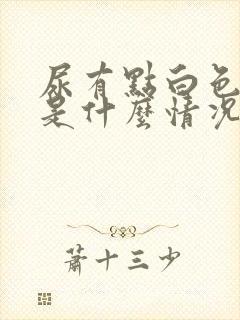 尿有點白色
是什麼情況
蕭十三少